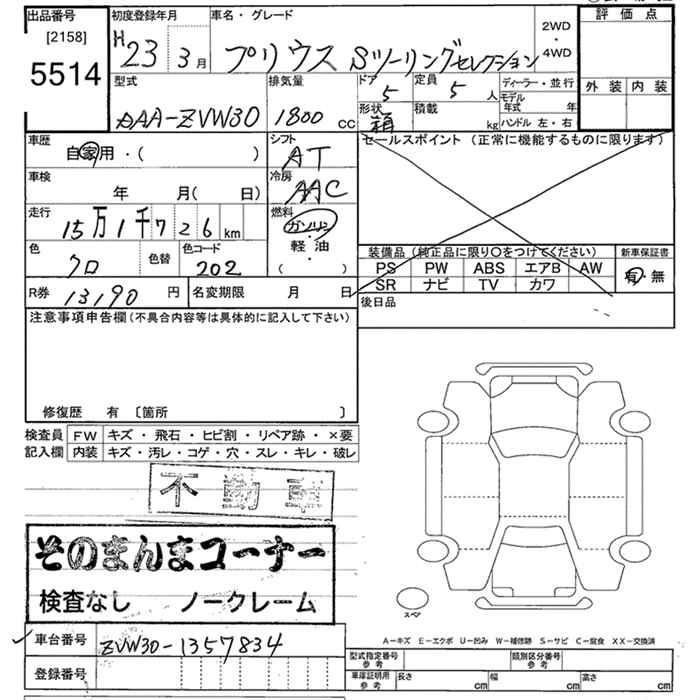 出品番号
[2158]
5514
初度登録年月
H 23 3月
車名・グレード
プリウス Sツーリングセレクション
2WD
・
4WD
評価点
外装 内装
型式
DAA-ZVW30
排気量
1800 CC
ドア 5
形状 箱
定員 5 人
積載 kg
ディーラー・並行
モデル年式 年
ハンドル 左・右
車歴
自家用・( )
シフト
AT
車検
年 月(日)
冷房
AAC
走行
15万1千726km
燃料
ガソリン
・
軽油
( )
色
クロ
色替
色コード
202
セールスポイント (正常に機能するものに限ります)
装備品(純正品に限り○をつけてください)
PS PW ABS エアB AW
SR ナビ TV カワ
新車保証書
有・無
R券 13190 円
名変期限 月 日
後日品
注意事項申告欄(不具合内容等は具体的に記入して下さい)
修復歴 有 〔箇所 〕
検査員 FW キズ・飛石・ヒビ割・リペア跡・×要
記入欄 内装 キズ・汚レ・コゲ・穴・スレ・キレ・破レ
不動車
そのまんまコーナー
検査なし ノークレーム
スペア
A-キズ E-エクボ U-凹み W-補修跡 S-サビ C-腐食 XX-交換済
車台番号 ZVW30-1357834
登録番号
型式指定番号 参考
類別区分番号 参考
車庫証明用 参考
長さ cm
幅 cm
高さ cm